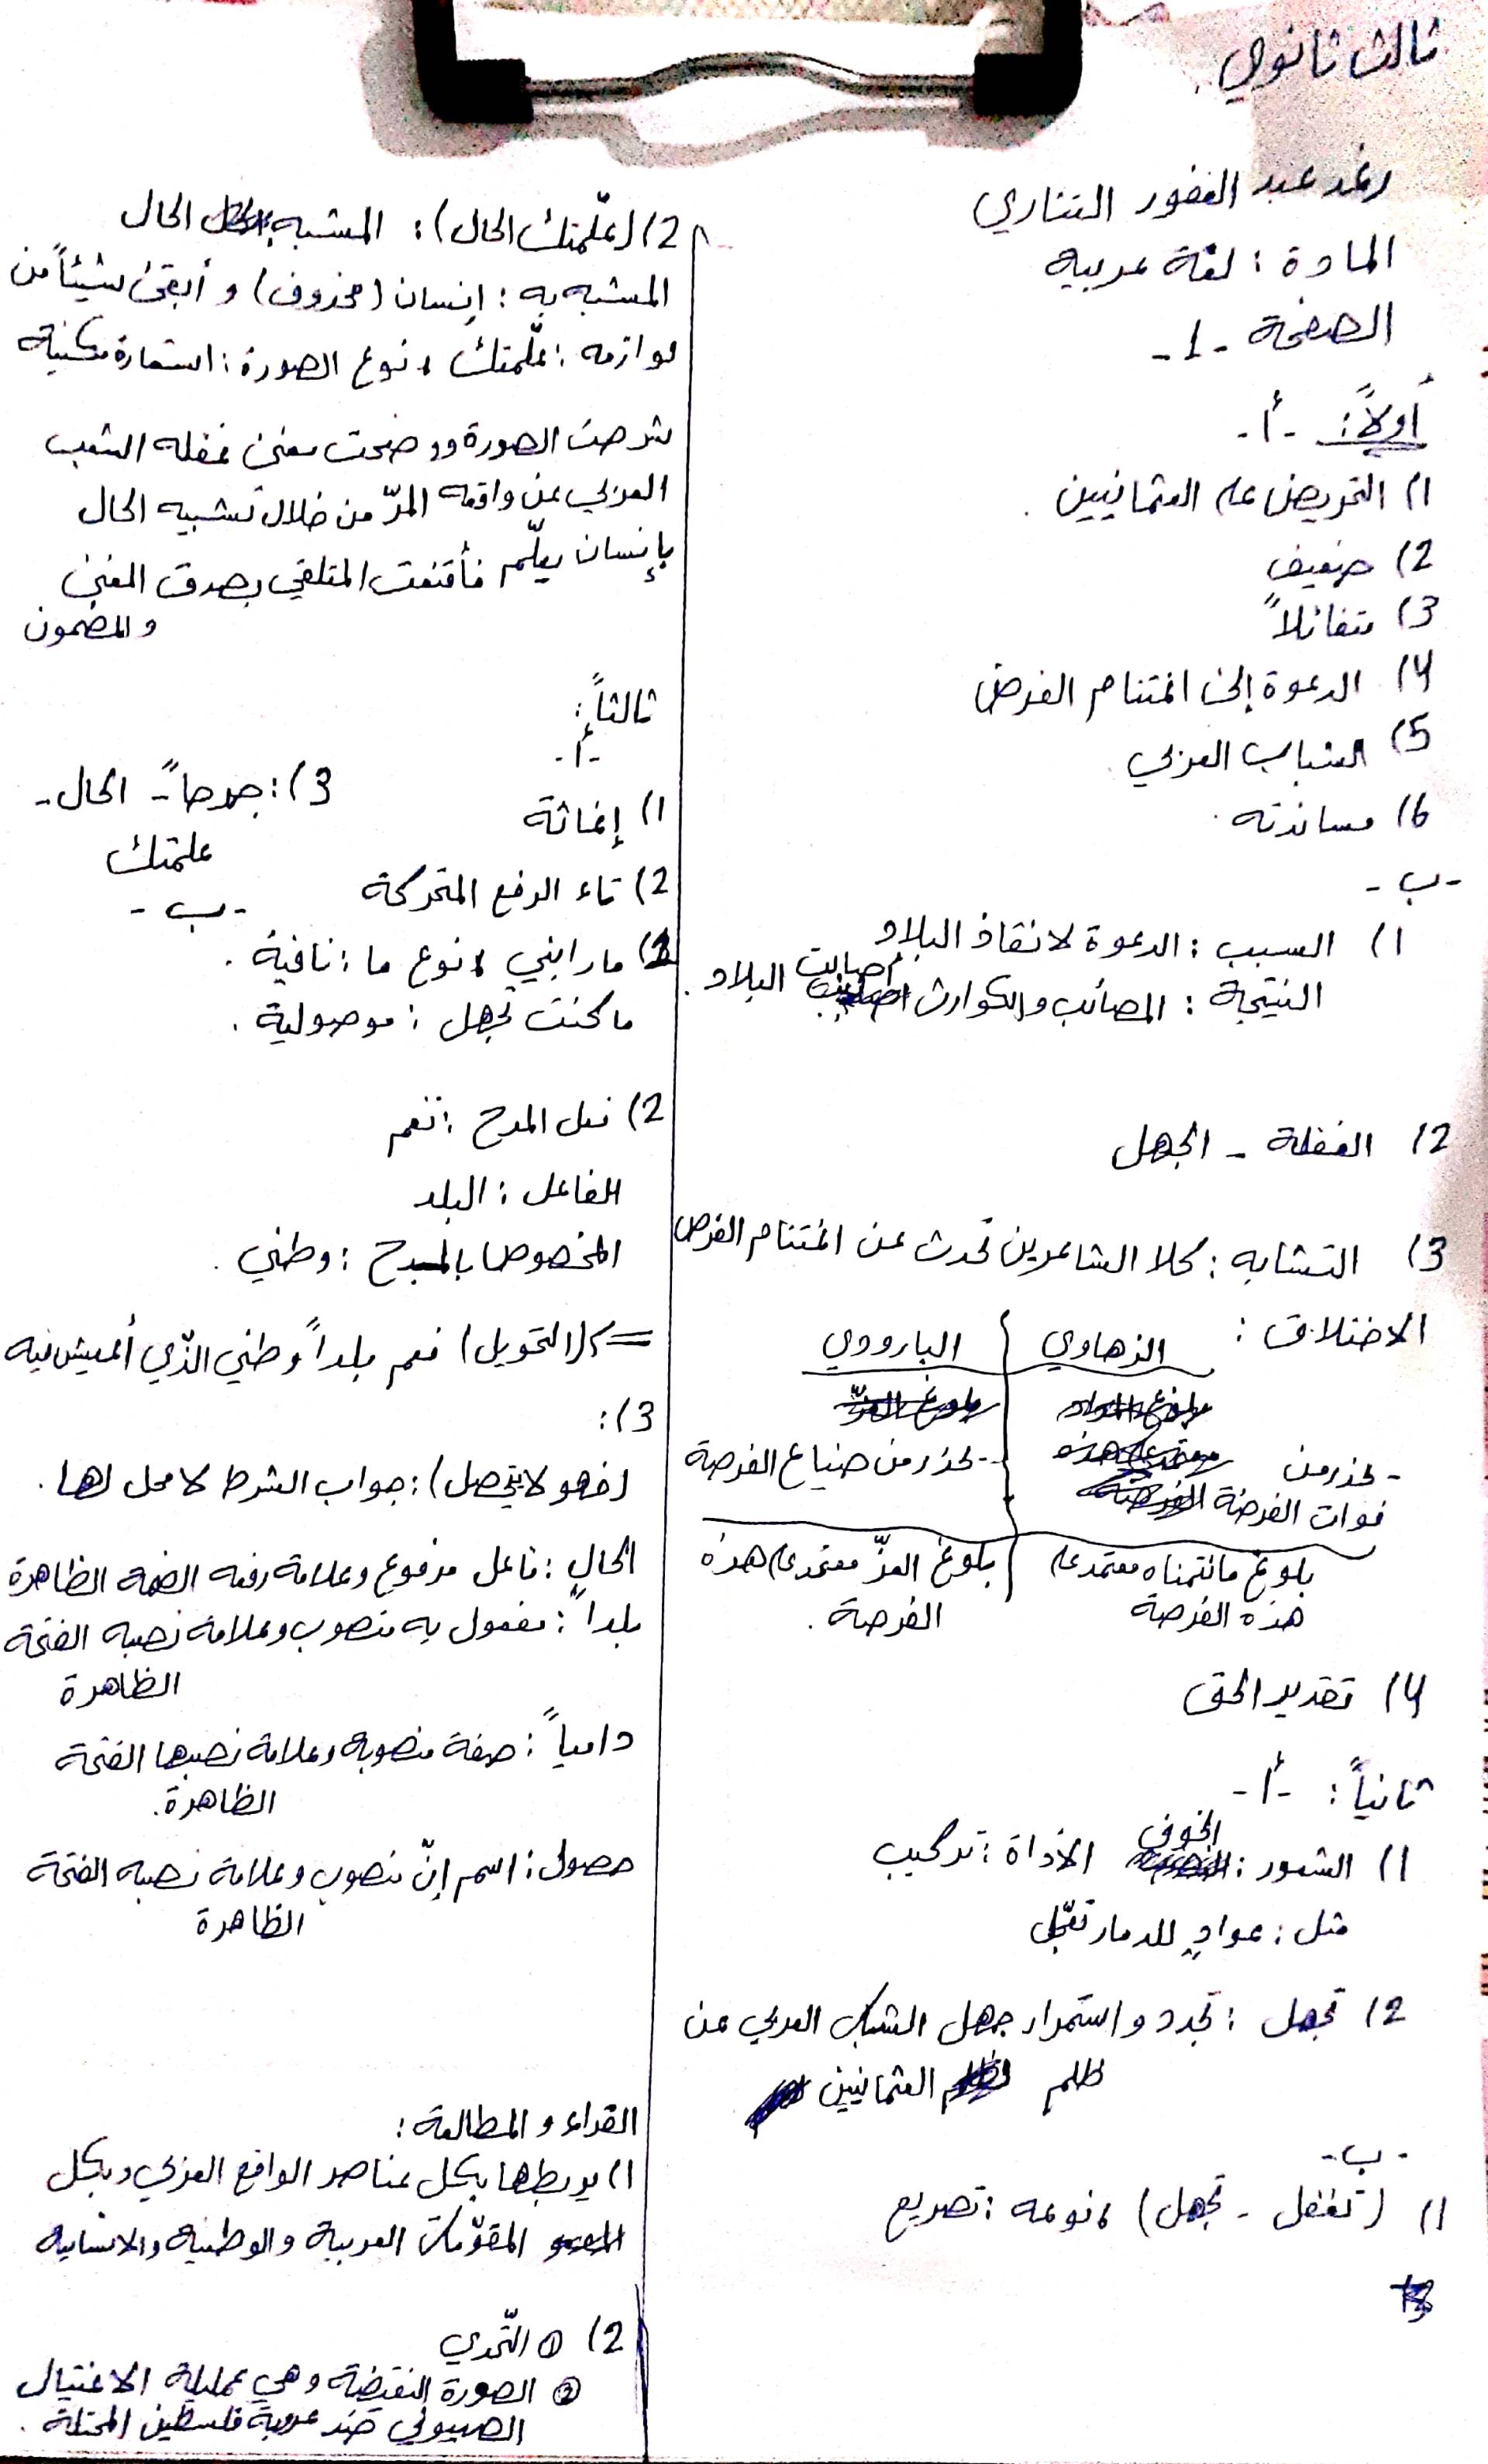 ثالث ثانوي
رغد عبد الغفور التناري
المادة : لغة عربية
الصفحة -1-
أولاً: -أ-
1) التحريض على العثمانيين .
2) ضعيف
3) متفائلاً
4) الدعوة إلى اغتنام الفرض
5) الشباب العربي .
6) مساندته .
-ب-
1) السبب : الدعوة لانقاذ البلاد
النتيجة : المصائب والكوارث أصابت البلاد .
2) الغفلة - الجهل
3) التشابه : كلا الشاعرين تحدث عن اغتنام الفرص
الاختلاف : الزهاوي البارودي
- يحذر من فوات الفرصة - يحذر من ضياع الفرصة
بلوغ ما نتمناه معتمد على هذه الفرصة بلوغ العزّ معتمد على هذه الفرصة .
4) تقدير الحق
ثانياً : -أ-
1) الشعور : الخوف الأداة : تركيب
مثل : عوادٍ للدمار تعجّل
2) تجهل : تجدد و استمرار جهل الشباب العربي عن
ظلم العثمانيين
-ب-
1) (تغفل - تجهل) ، نوعه : تصريع
2) (علّمتك الحال) : المشبه الحال
المشبه به : إنسان (محذوف) و أبقى شيئاً من
لوازمه : علّمتك ، نوع الصورة : استعارة مكنية
شرحت الصورة ووضحت معنى غفله الشعب
العربي عن واقعه المرّ من خلال تشبيه الحال
بإنسان يعلّم فأقنعت المتلقي بصدق المعنى
والمضمون
ثالثاً :
-أ-
1) إغاثة
2) تاء الرفع المتحركة
3) : جرحاً - الحال -
علمتك
-ب-
1) ما رابني ، نوع ما : نافية .
ما كنت تجهل : موصولية .
2) فعل المدح : نعم
الفاعل : البلد
المخصوص بالمدح : وطني .
=> (التحويل) نعم بلداً وطني الذّي أعيش فيه
3) :
(فهو لا يتحصل) : جواب الشرط لا محل لها .
الحال : فاعل مرفوع وعلامة رفعه الضمه الظاهرة
بلداً : مفعول به منصوب وعلامة نصبه الفتحة
الظاهرة
دامياً : صفة منصوبه وعلامة نصبها الفتحة
الظاهرة.
حصول : اسم إنّ منصوب وعلامة نصبه الفتحة
الظاهرة
القراء و المطالعة :
1) يربطها بكل عناصر الواقع العربي وبكل
المقوّمات العربية والوطنية والانسانيه
2) ① التّحدي
② الصورة النقيضة وهي عملية الاغتيال
الصهيوني ضد عروبة فلسطين المحتلة .